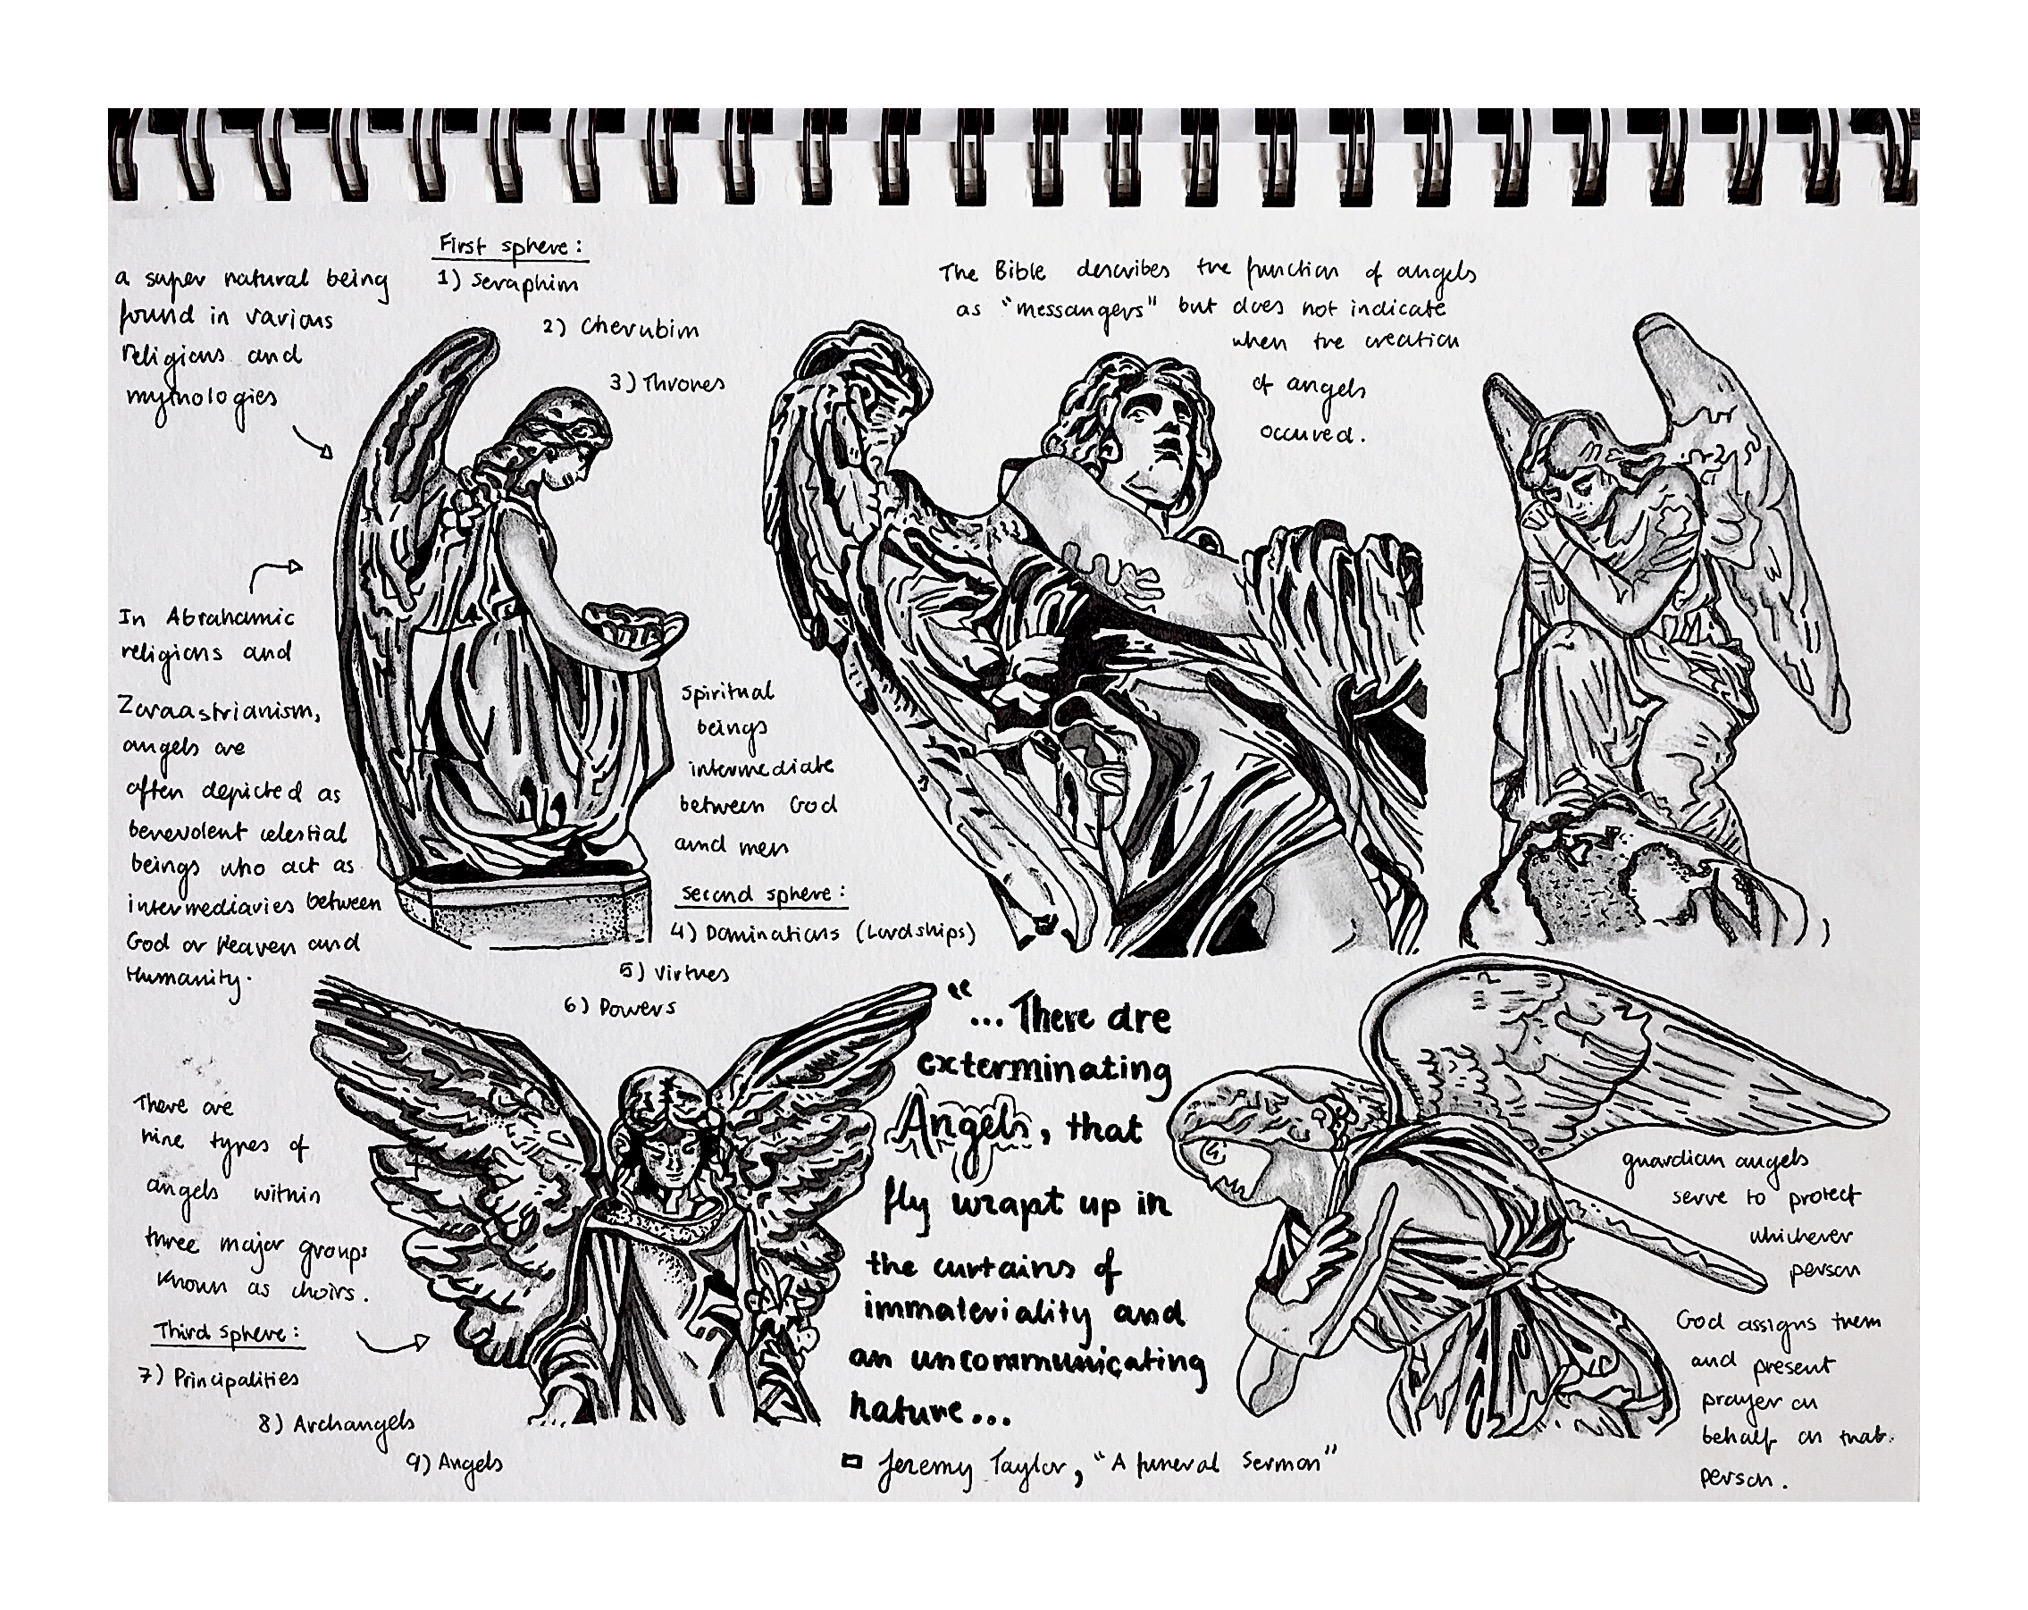 First sphere:
1) Seraphim
2) Cherubim
3) Thrones
a super natural being
found in various
religions and
mythologies
The Bible describes the function of angels
as "messangers" but does not indicate
when the creation
of angels
occured.
In Abrahamic
religions and
Zoroastrianism,
angels are
often depicted as
benevolent celestial
beings who act as
intermediaries between
God or Heaven and
Humanity.
spiritual
beings
intermediate
between God
and men
Second sphere:
4) Dominations (Lordships)
5) Virtues
6) Powers
There are
nine types of
angels within
three major groups
known as choirs.
Third sphere:
7) Principalities
8) Archangels
9) Angels
"...There are
exterminating
Angels, that
fly wrapt up in
the curtains of
immateriality and
an uncommunicating
nature...
Jeremy Taylor, "A funeral Sermon"
guardian angels
serve to protect
whichever
person
God assigns them
and present
prayer on
behalf on that
person.